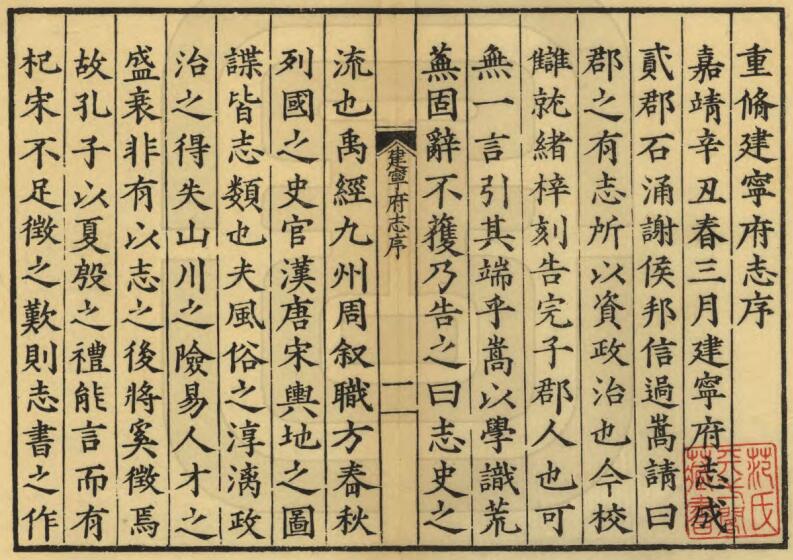 重脩建寧府志序
嘉靖辛丑春三月建寧府志成
貳郡石涌謝侯邦信過嵩請曰
郡之有志所以資政治也今校
讎就緒梓刻告完子郡人也可
無一言引其端乎嵩以學識荒
蕪固辭不獲乃告之曰志史之
建寧府志序
一
流也禹經九州周叙職方春秋
列國之史官漢唐宋輿地之圖
諜皆志類也夫風俗之淳漓政
治之得失山川之險易人才之
盛衰非有以志之後將奚徵焉
故孔子以夏殷之禮能言而有
杞宋不足徵之歎則志書之作
范氏天一閣藏書